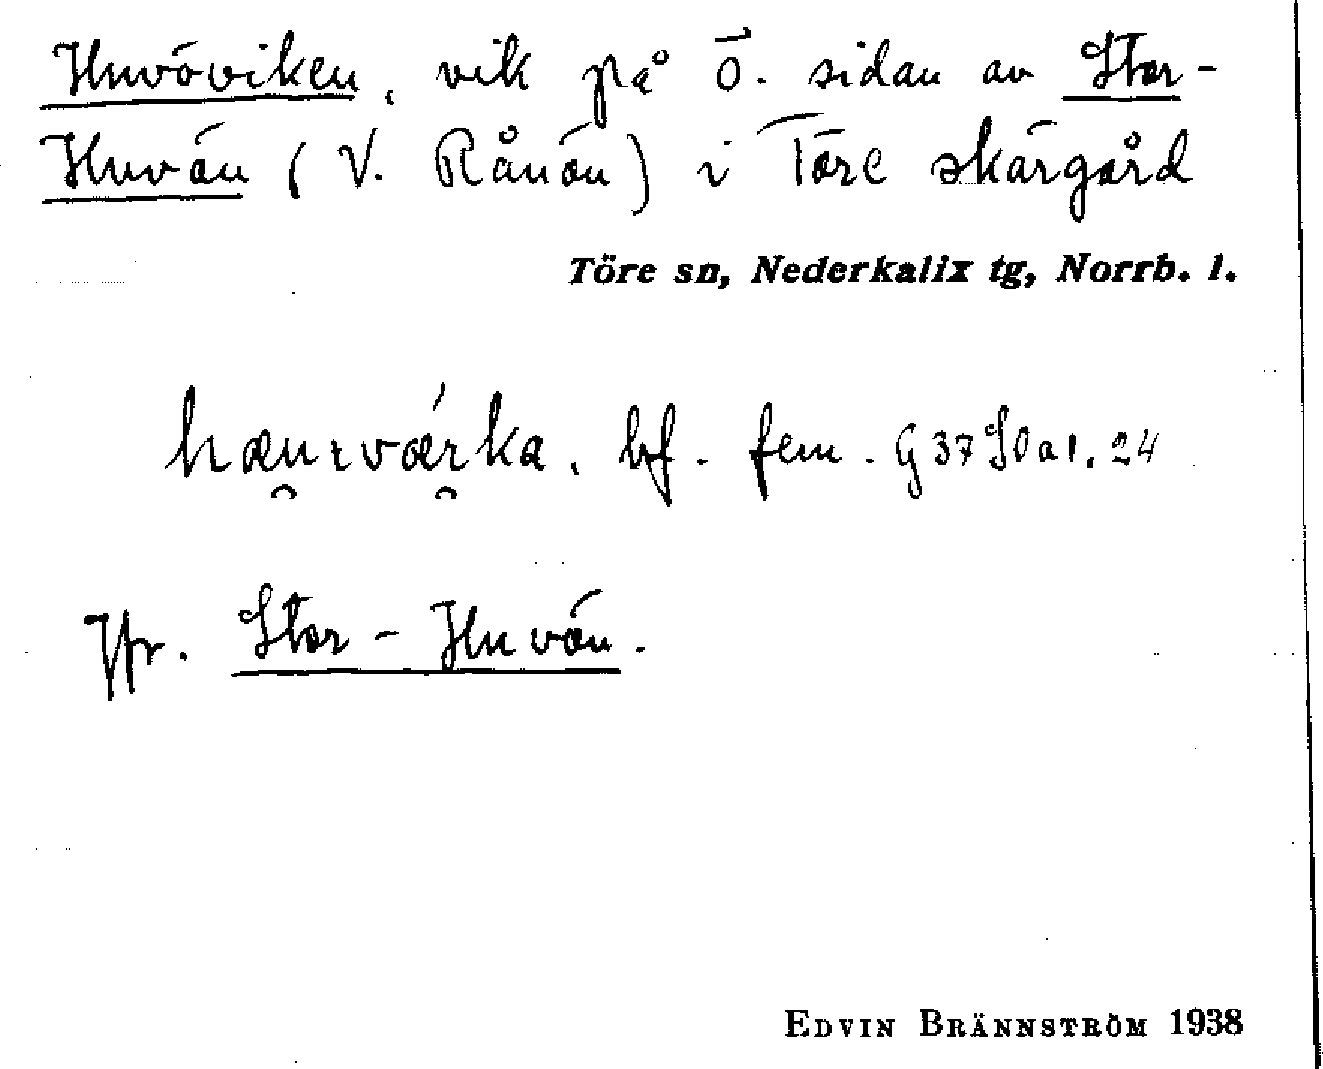 Huvöviken, vik på Ö. sidan av Stor-
Huvön (V. Rånön) i Töre skärgård
Töre sn, Nederkalix tg, Norrb. l.
bf. fem. G 37
Jfr. Stor-Huvön.
EDVIN BRÄNNSTRÖM 1938